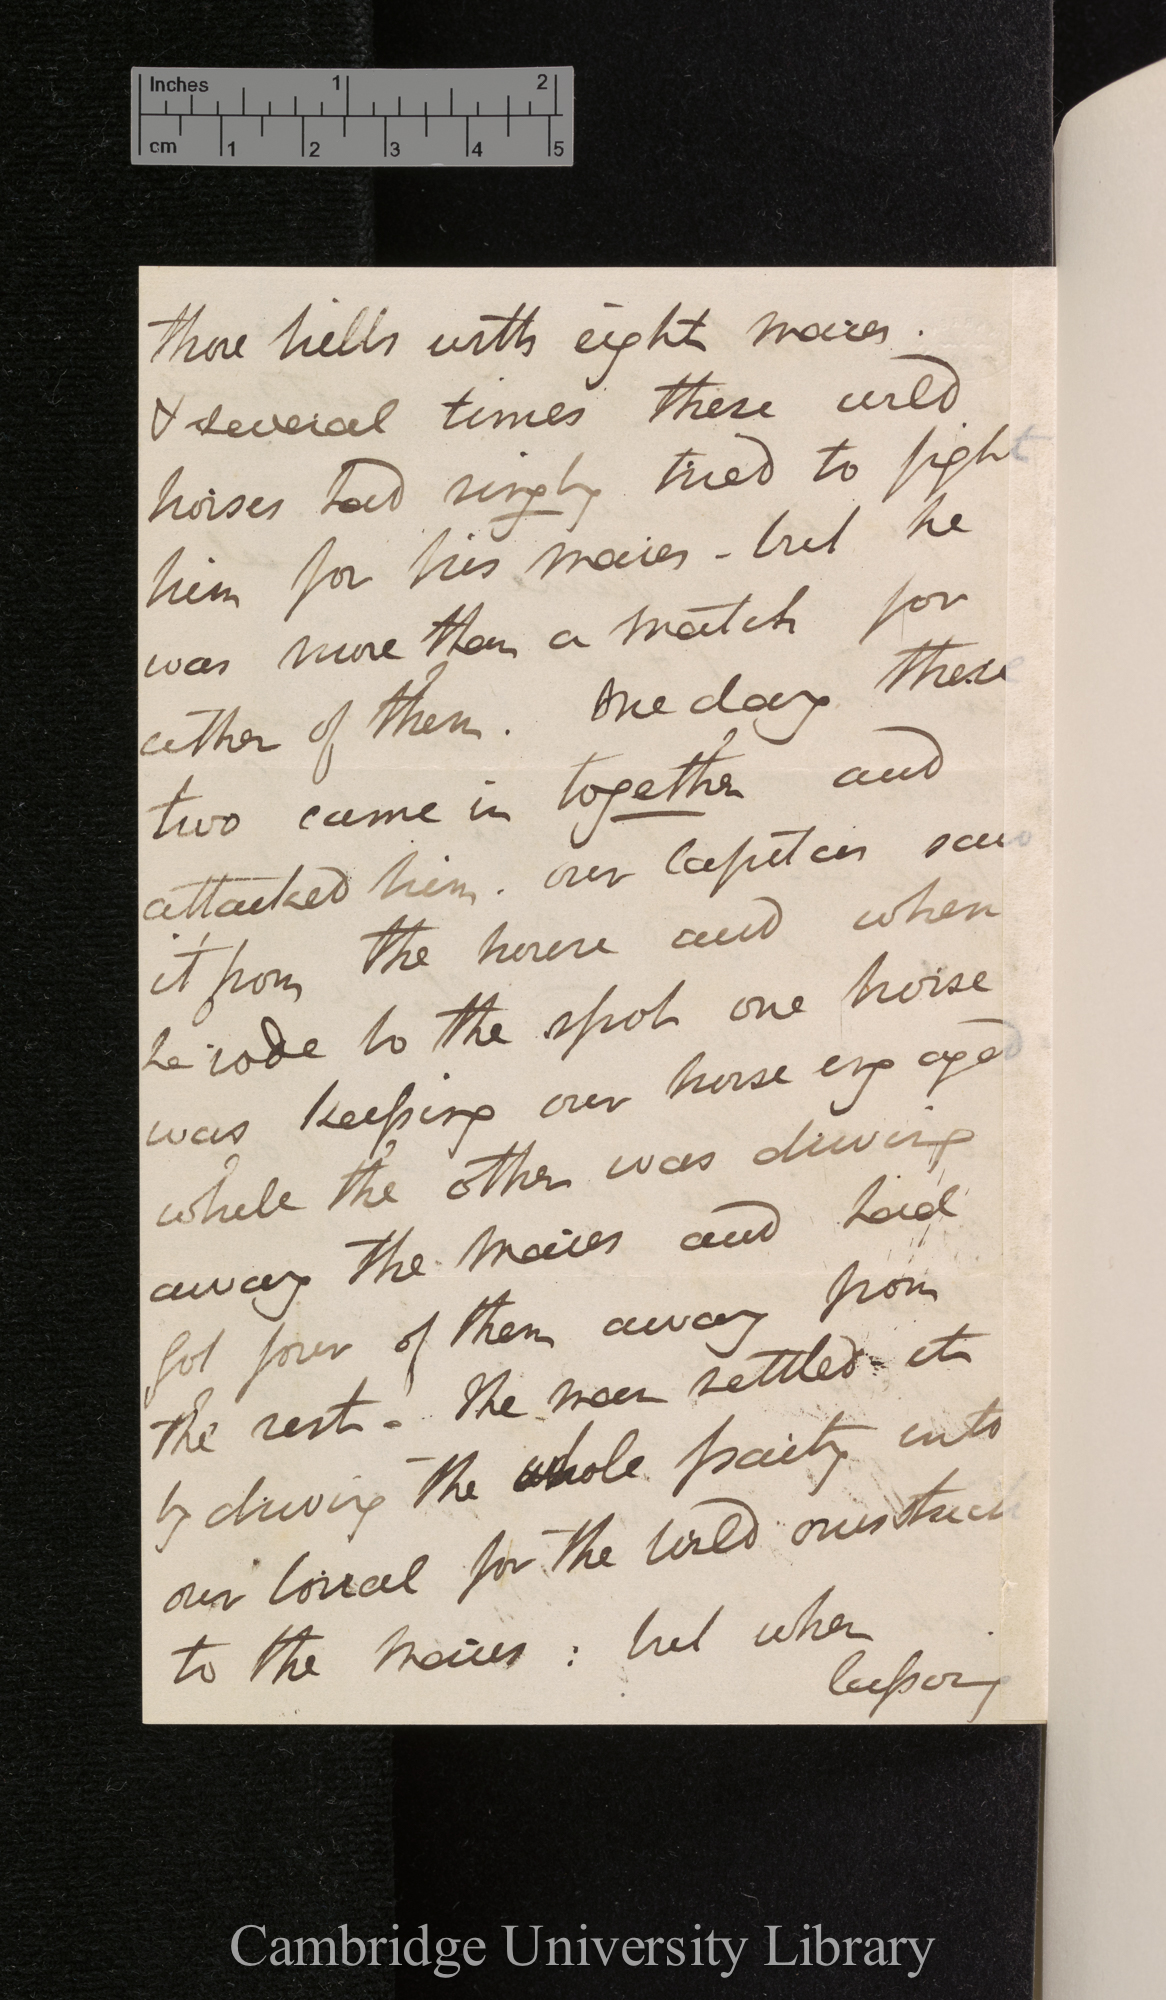 Inches 1 2
cm 1 2 3 4 5
those hills with eight mares.
& several times these wild
horses had singly tried to fight
him for his mares - but he
was more than a match for
either of them. One day these
two came in together and
attacked him. our Capitan saw
it from the house and when
he rode to the spot one horse
was keeping our horse engaged
while the other was driving
away the mares and had
got four of them away from
the rest - The man settled it
by driving the whole party into
our Corral for the wild ones stuck
to the mares : but when
Cambridge University Library